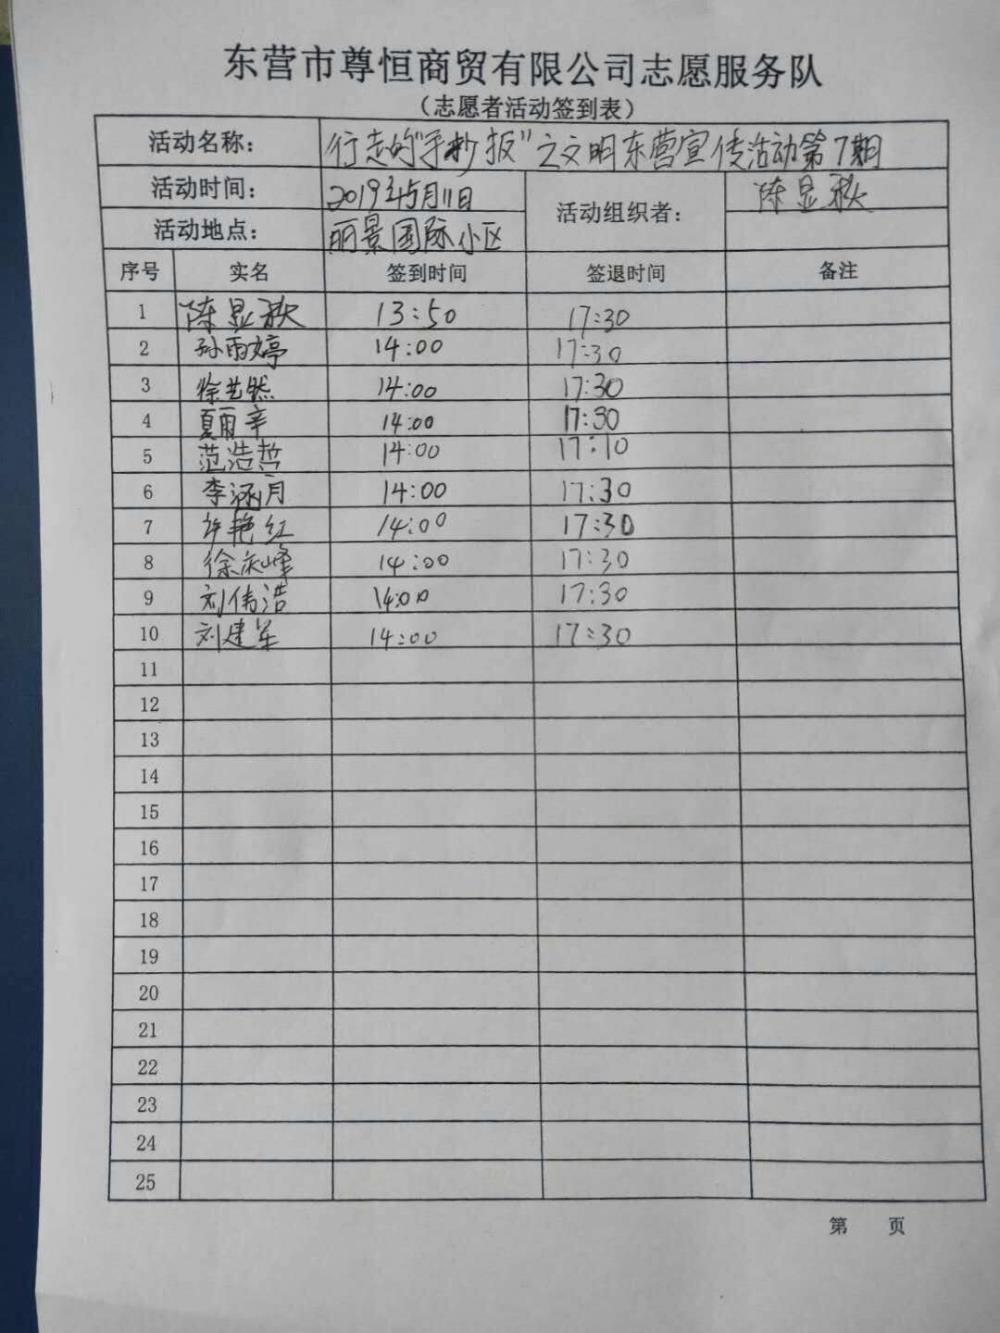 东营市尊恒商贸有限公司志愿服务队
（志愿者活动签到表）
活动名称： 行走的“手抄报”之文明东营宣传活动第7期
活动时间： 2019年5月11日 活动组织者： 陈显秋
活动地点： 丽景国际小区
序号 实名 签到时间 签退时间 备注
1 陈显秋 13:50 17:30
2 孙雨婷 14:00 17:30
3 徐艺然 14:00 17:30
4 夏雨辛 14:00 17:30
5 范浩哲 14:00 17:10
6 李涵月 14:00 17:30
7 许艳红 14:00 17:30
8 徐庆峰 14:00 17:30
9 刘伟浩 14:00 17:30
10 刘建军 14:00 17:30
11
12
13
14
15
16
17
18
19
20
21
22
23
24
25
第 页